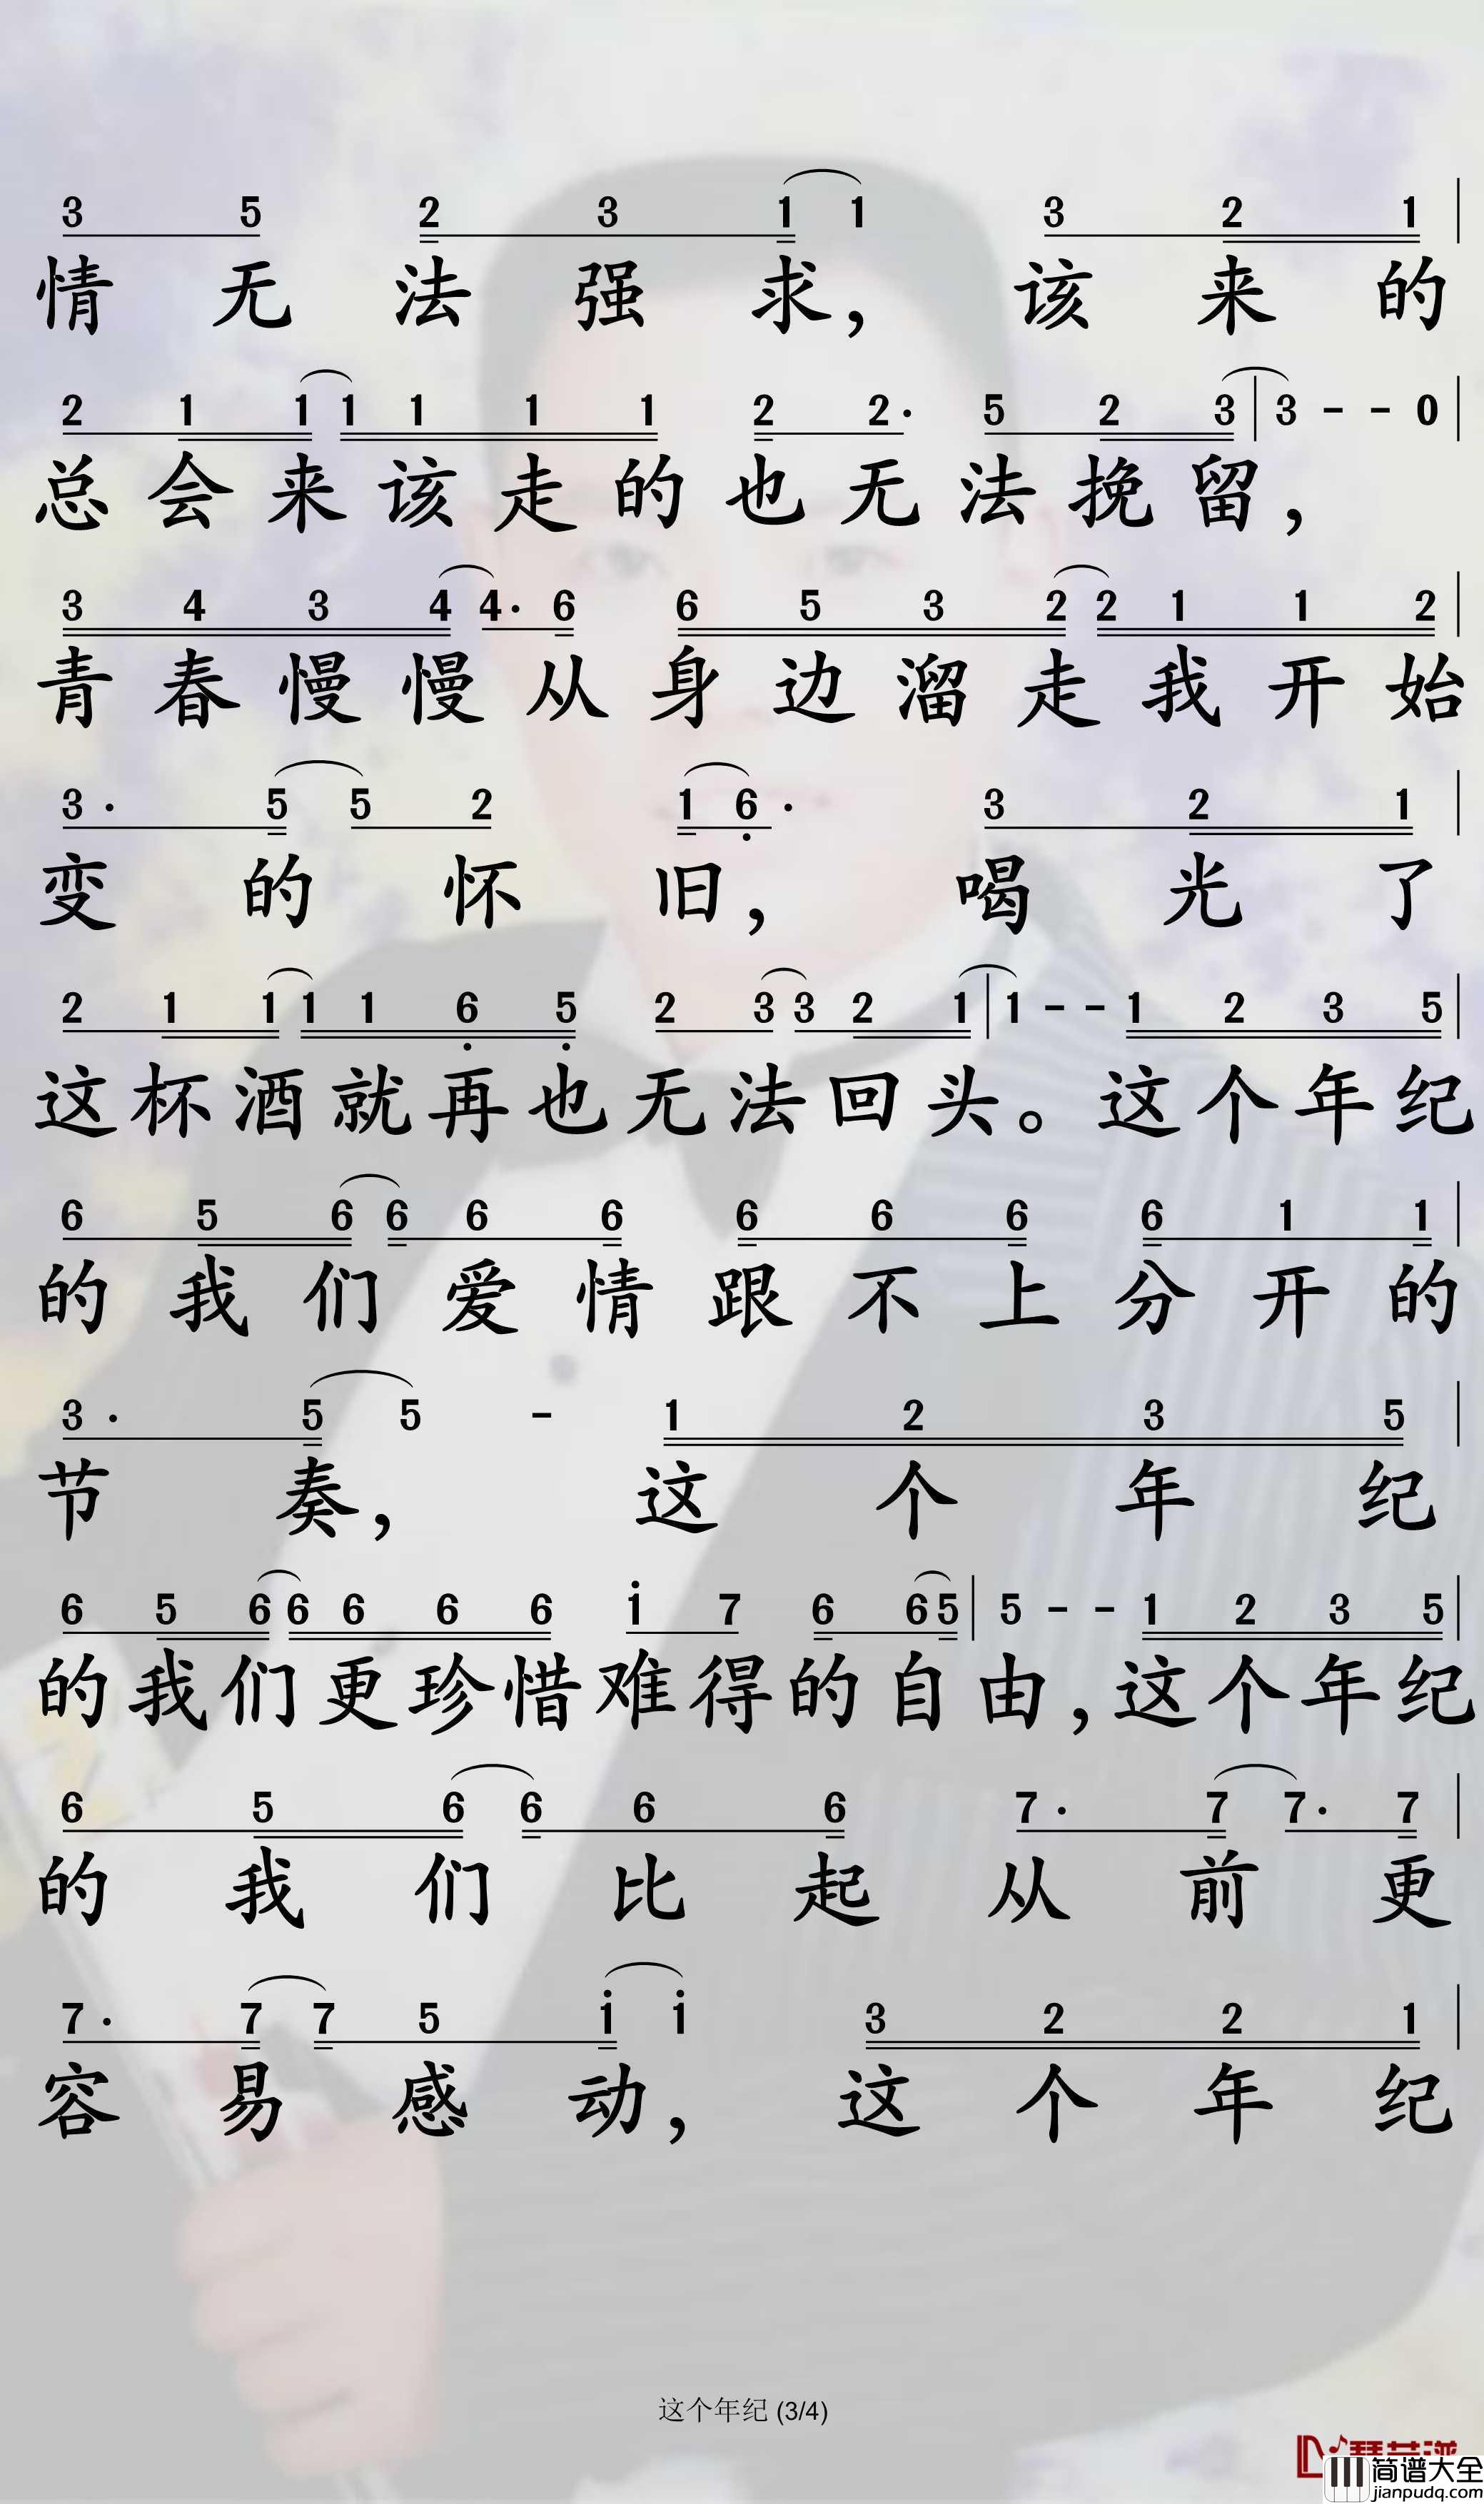 3 5 2 3 1 1 3 2 1 |
情无法强求，该来的
2 1 1 1 1 1 1 2 2· 5 2 3 | 3 - - 0 |
总会来该走的也无法挽留，
3 4 3 4 4· 6 6 5 3 2 2 1 1 2 |
青春慢慢从身边溜走我开始
3· 5 5 2 1 6̣· 3 2 1 |
变的怀旧，喝光了
2 1 1 1 1 6̣ 5̣ 2 3 3 2 1 | 1 - - 1 2 3 5 |
这杯酒就再也无法回头。这个年纪
6 5 6 6 6 6 6 6 6 6 1 1 |
的我们爱情跟不上分开的
3· 5 5 - 1 2 3 5 |
节奏，这个年纪
6 5 6 6 6 6 6 1̇ 7 6 6 5 | 5 - - 1 2 3 5 |
的我们更珍惜难得的自由，这个年纪
6 5 6 6 6 6 7· 7 7· 7 |
的我们比起从前更
7· 7 7 5 1̇ 1̇ 3 2 2 1 |
容易感动，这个年纪
这个年纪 (3/4)
简谱大全
jianpudq.com